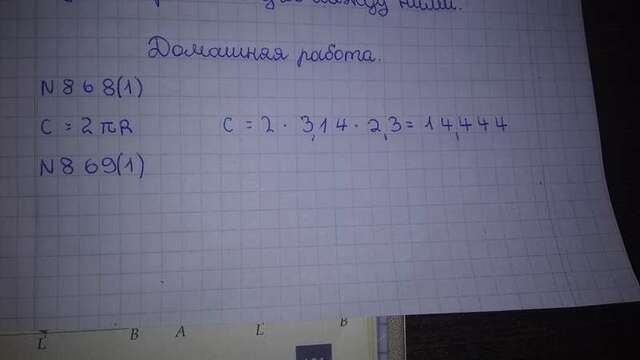 между ними.
Домашняя работа.
N 868(1)
C = 2πR C = 2 · 3,14 · 2,3 = 14,444
N 869(1)
L B A L B